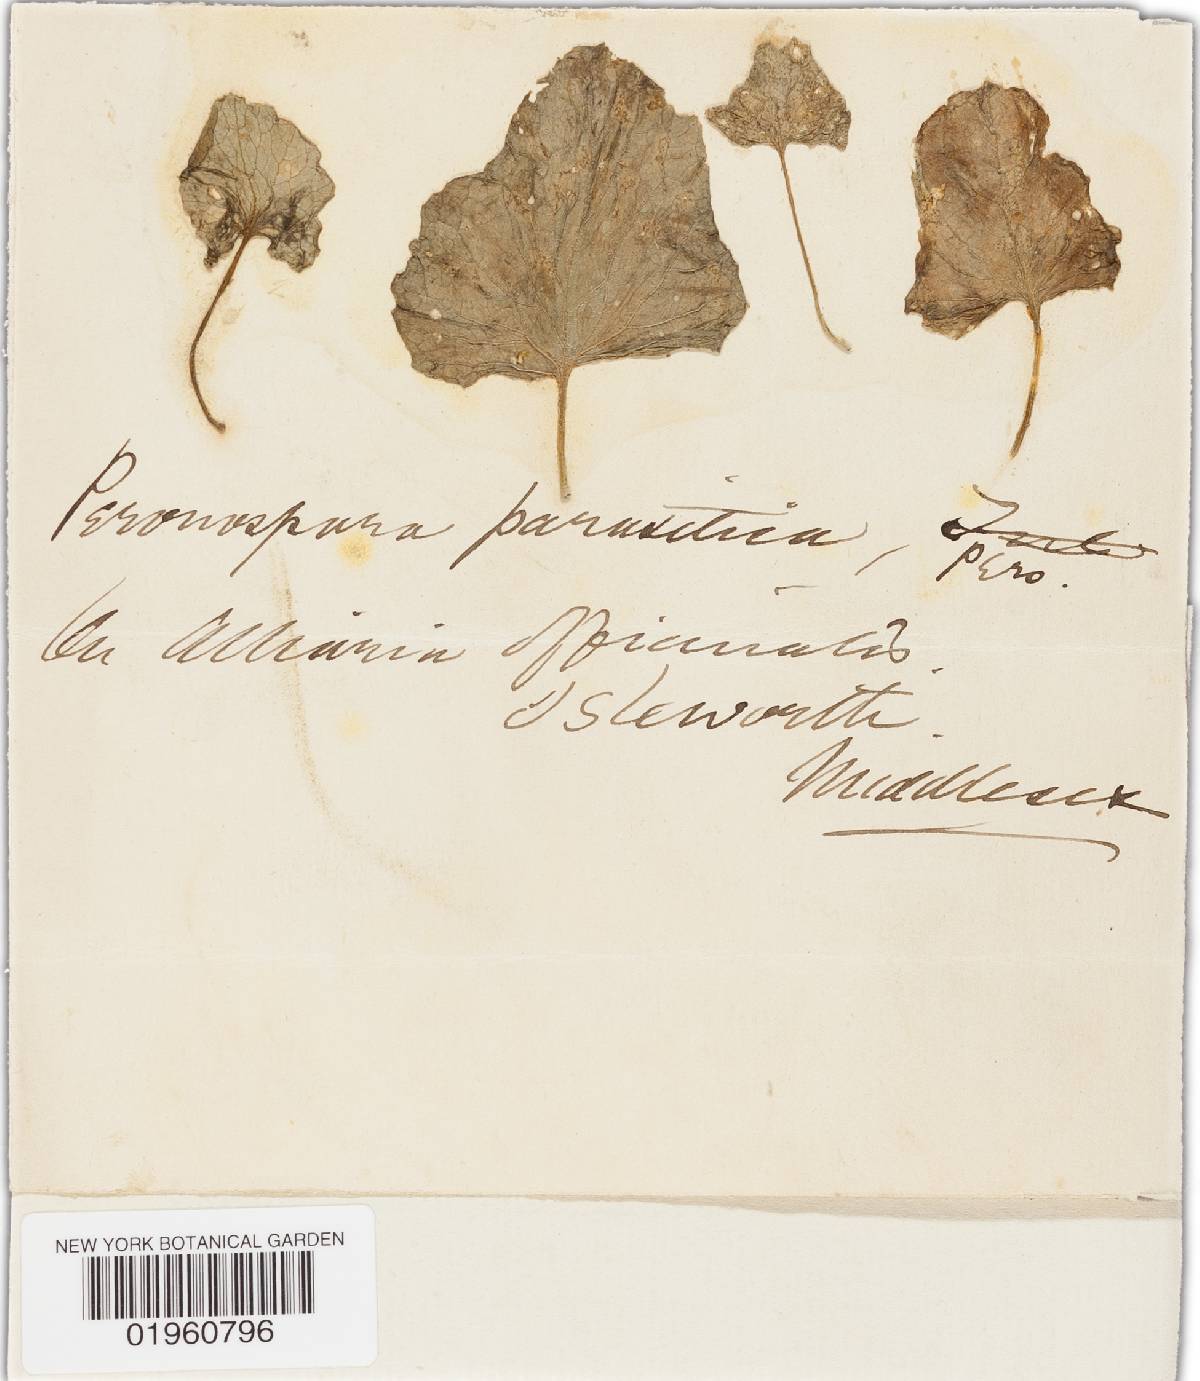 Peronospora parasitica,
Pero.
On Alliaria officinalis.
Isleworth.
Middlesex
NEW YORK BOTANICAL GARDEN
01960796